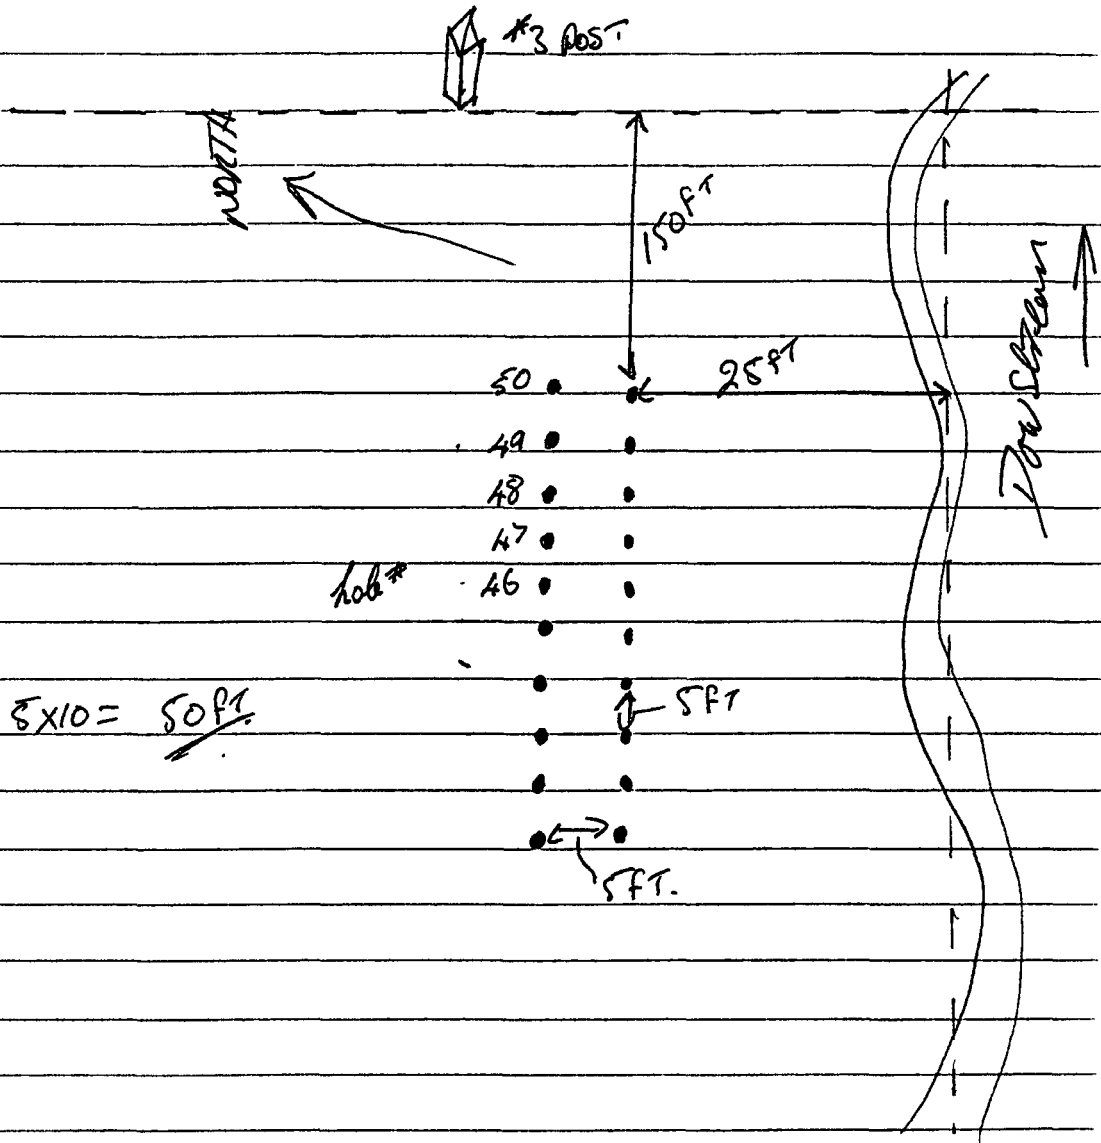 #3 POST
NORTH
150FT
DownStream
50
25FT
49
48
47
hole #
46
5X10= 50FT.
5FT
5FT.